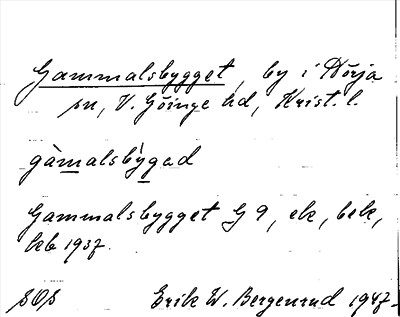 Gammalsbygget, by i Nörja
sn, V. Göinge hd, Krist. l.
gàmalsby̕gad
Gammalsbygget G 9, ek, bek,
kb 1937.
SOS Erik W. Bergenrud 1947.